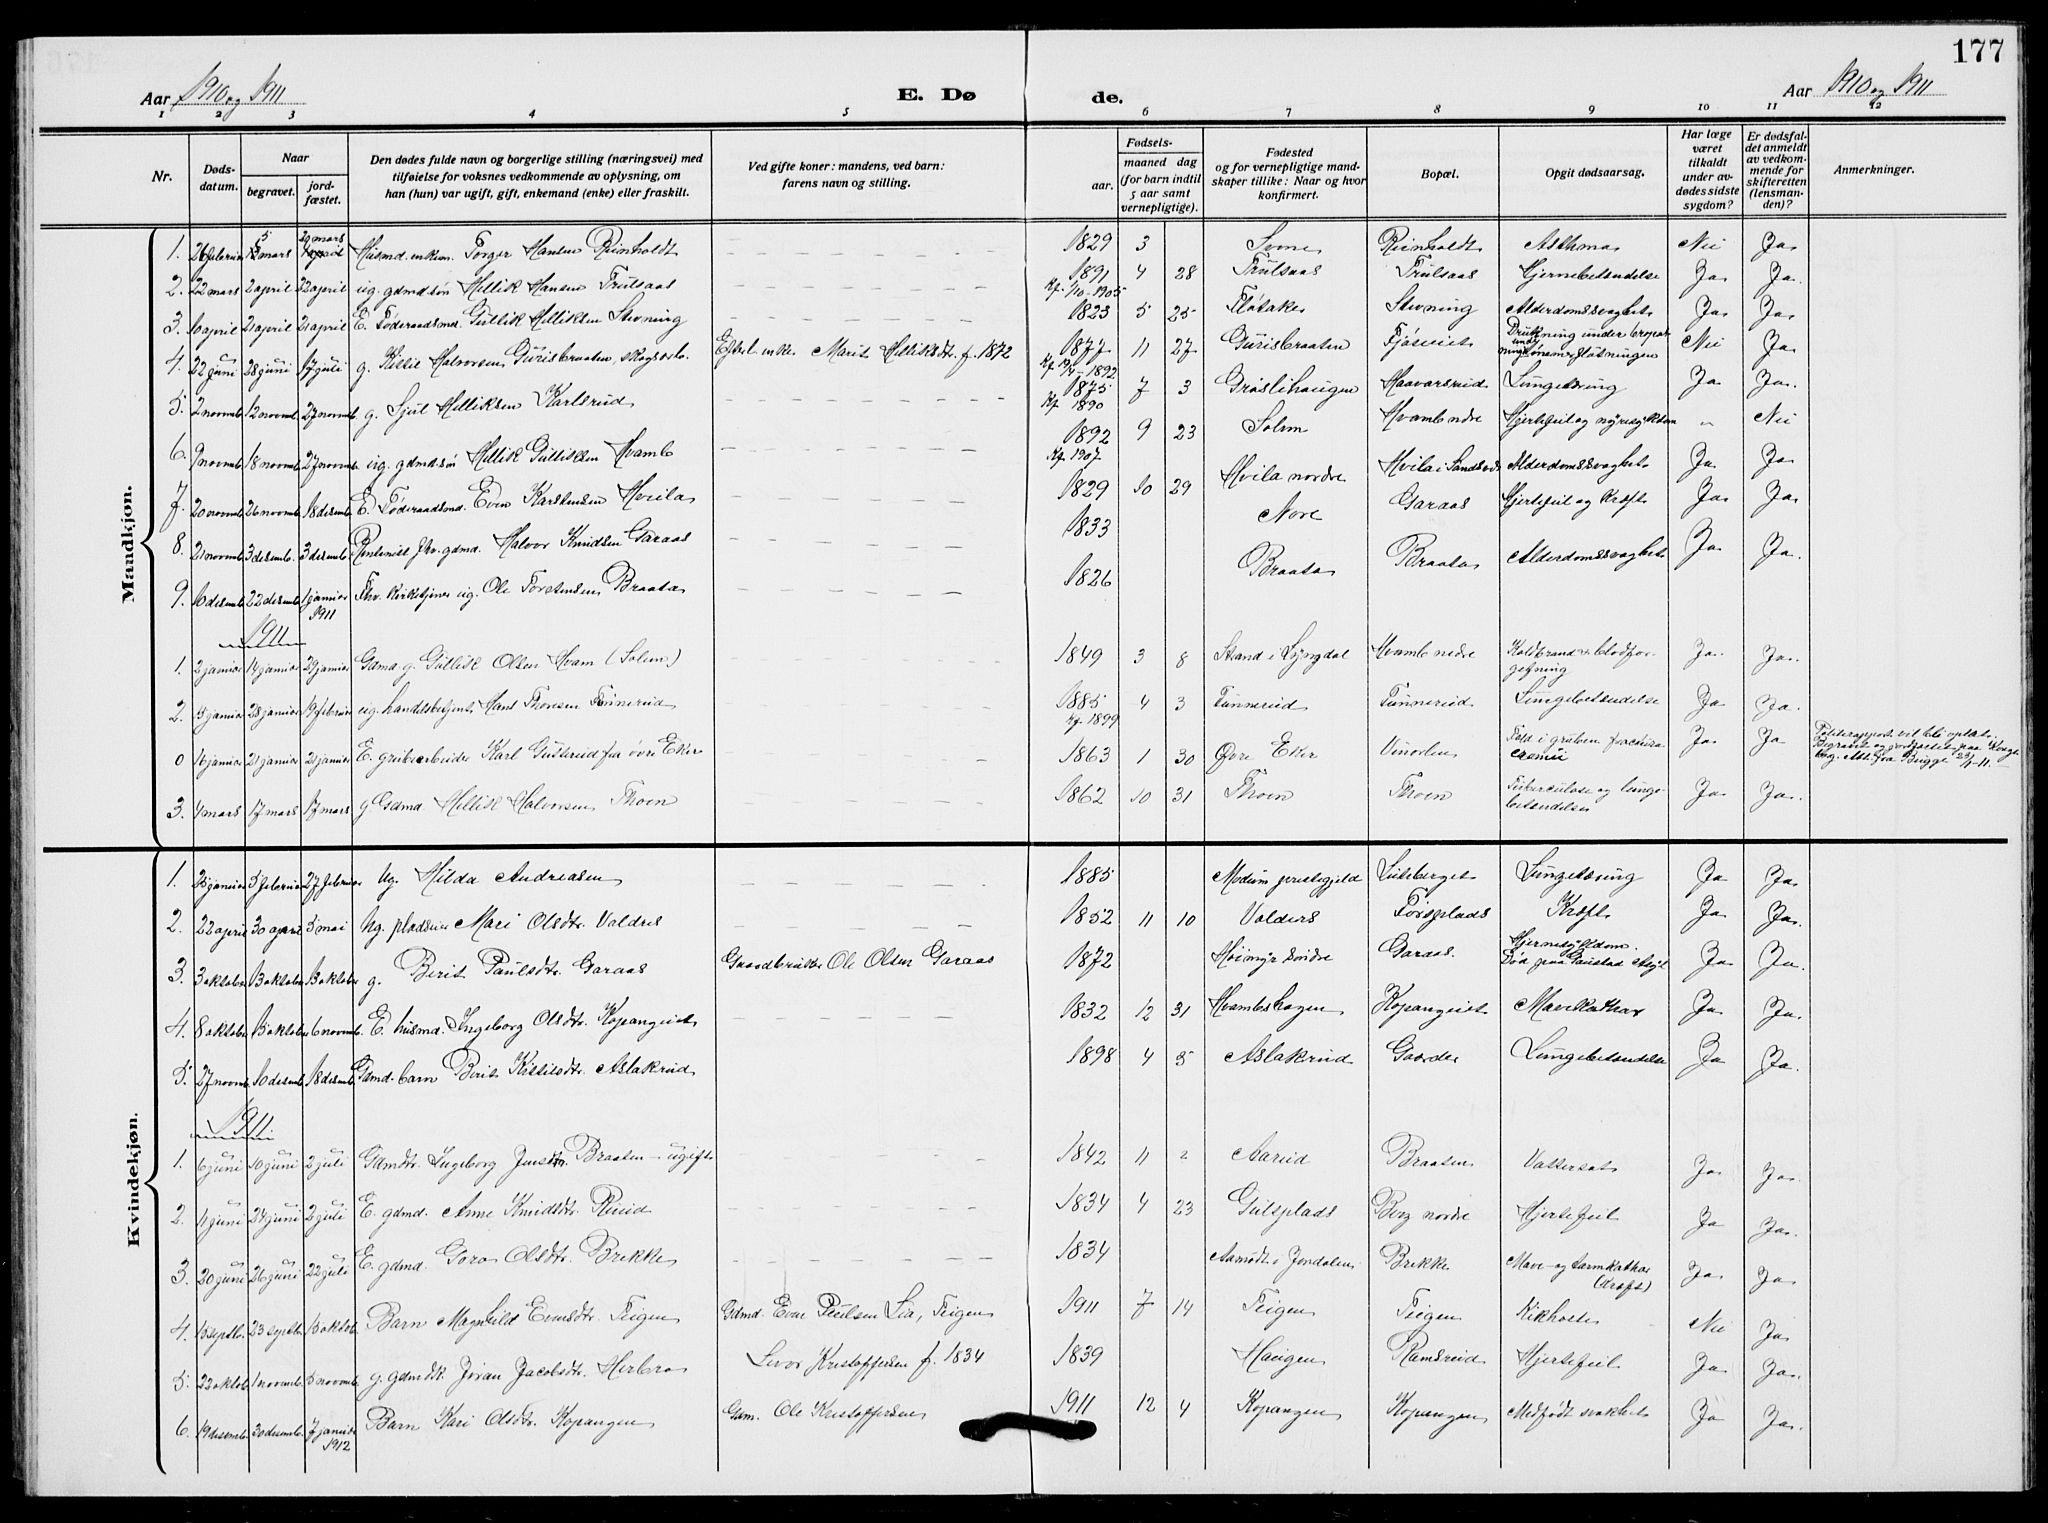 177
Aar 1910 og 1911
E. Dø
de.
Aar 1910 og 1911
1 2 3 4 5 6 7 8 9 10 11 12
Nr.
Døds-
datum.
Naar
begravet.
jord-
fæstet.
Den dødes fulde navn og borgerlige stilling (næringsvei) med
tilføielse for voksnes vedkommende av oplysning, om
han (hun) var ugift, gift, enkemand (enke) eller fraskilt.
Ved gifte koner: mandens, ved barn:
farens navn og stilling.
Fødsels-
aar.
maaned dag
(for barn indtil
5 aar samt
vernepligtige).
Fødested
og for vernepligtige mand-
skaper tillike: Naar og hvor
konfirmert.
Bopæl.
Opgit dødsaarsag.
Har læge
været
tilkaldt
under av-
dødes sidste
sygdom?
Er dødsfal-
det anmeldt
av vedkom-
mende for
skifteretten
(lensman-
den)?
Anmerkninger.
Mandkjøn.
1. 26 februar 5 mars 29 mars Husmd. enkem. Torger Hansen Reinholdt 1829 3 Svene Reinholdt Asthma Nei Ja
2. 22 mars 2 april 22 april ug. gdmdsøn Hellik Hansen Trulsaas 1891 4 28 Trulsaas Trulsaas Hjernebetændelse Ja Ja.
Kf. 1/10-1905
3. 10 april 21 april 21 april E. Føderaadsmd. Gullik Helliksen Stevning 1823 5 25 Fløtaker Stevning Alderdomssvaghet Ja Ja
4. 22 juni 28 juni 17 juli g. Kittil Halvorsen Gurisbraaten, skogsarb. Efterl. enke Marit Helliksdtr. f. 1872 1877 11 27 Gurisbraaten Fjøsveiet Drukning under Nei Ja
5. 2 novemb. 12 novemb. 27 novemb. g. Sjul Helliksen Karlsrud 1875 7 3 Grøslihaugen Haavarsrud Lungetæring Ja Ja.
Kf. 1890
6. 9 novemb. 18 novemb. 27 novemb. ug. gdmdsøn Hellik Gulliksen Hvamb 1892 9 23 Solem Hvamb nedre Hjertefeil og nyresykdom " Nei
Kf. 1907
7. 20 novemb. 26 novemb. 18 desemb. E. Føderaadsmd. Even Karstensen Hvila 1829 10 29 Hvila nordre Hvila i Sandsv. Alderdomssvaghet Ja Ja
8. 21 novemb. 3 desemb. 3 desemb. Rentenist fhv. gdmd. Halvor Knudsen Garaas 1833 Nore Garaas Hjertefeil og kræft Ja Ja
9. 16 desemb. 22 desemb. 1 januar 1911 Fhv. kirketjener ug. Ole Torstensen Braata 1826 Braata Braata Alderdomssvaghet Ja Ja.
1911
1. 2 januar 14 januar 29 januar Gdmd g. Gullik Olsen Hvam (Solem) 1849 3 8 Strand i Lyngdal Hvamb nedre Koldbrand blodfor-
giftning Ja Ja.
2. 15 januar 28 januar 19 februar ug. handelsbetjent Hans Thoresen Tunnerud 1885 4 3 Tunnerud Tunnerud Lungebetændelse Ja Ja.
Kf. 1899
0 16 januar 21 januar 21 januar E. grubearbeider Karl Gutterud fra øvre Eker 1863 1 30 Øvre Eker Vinoren Fald i gruben fractura
cranii Ja Ja Politirapport vil bli optat.
Begravet og jordfæstet paa Kongs-
berg.
3. 4 mars 17 mars 17 mars g. Gdmd. Hellik Halvorsen Thoen 1862 10 31 Thoen Thoen Tuberculose og lunge-
betændelse Ja Ja.
Kvindekjøn.
1. 25 januar 5 februar 27 februar Ug. Hilda Andreasen 1885 Modum prestegjeld Lurberget Lungetæring Ja Ja
2. 22 april 30 april 5 mai Ug. pladsm Mari Olsdtr. Valdres 1852 11 10 Valders Forsplads Kræft Ja Ja.
3. 3 oktober 13 oktober 13 oktober g. Berit Paulsdtr. Garaas Gaardbruker Ole Olsen Garaas 1872 Høimyr søndre Garaas. Hjernesykdom.
Død paa Gaustad Asyl Ja Ja.
4. 8 oktober 13 oktober 6 novemb. E. husmd. Ingeborg Olsdtr. Kopangeiet 1832 12 31 Hvambshagen Kopangeiet Mavekathar Ja Ja.
5. 27 novemb. 10 desemb. 18 desemb. Gdmd. barn Berit Kittilsdtr. Aslakrud 1898 4 5 Aslakrud Gaarder Lungebetændelse Ja Ja.
1911
1. 6 juni 10 juni 2 juli Gdmdtr. Ingeborg Jensdtr. Braaten - ugift 1842 11 2 Aarud Braaten Vattersot Ja Ja.
2. 11 juni 24 juni 2 juli E. gdmd. Anne Knudsdtr. Ruud 1834 4 23 Gulsplads Berg nordre Hjertefeil Ja Ja.
3. 20 juni 26 juni 22 juli E. gdmd. Goro Olsdtr. Brekke 1834 Aamodt i Jondalen Brekke Mave- og tarmkathar
(kræft) Ja Ja
4. 15 septb. 23 septb. 13 oktob. Barn Magnhild Evensdtr. Teigen Gdmd. Even Paulsen Lia, Teigen 1911 7 14 Teigen Teigen Kikhoste Nei Ja
5. 22 oktob. 1 novemb. 5 novemb. g. gdmdk. Jøran Jacobsdtr. Herbro Sevor Kristoffersen f. 1834 1839 Haugen Ramsrud Hjertefeil Ja Ja.
6. 19 desemb. 30 desemb. 7 januar 1912 Barn Kari Olsdtr. Kopangen Gdm. Ole Kristoffersen 1911 12 4 Kopangen Kopangen Medfødt svakhet Ja Ja.